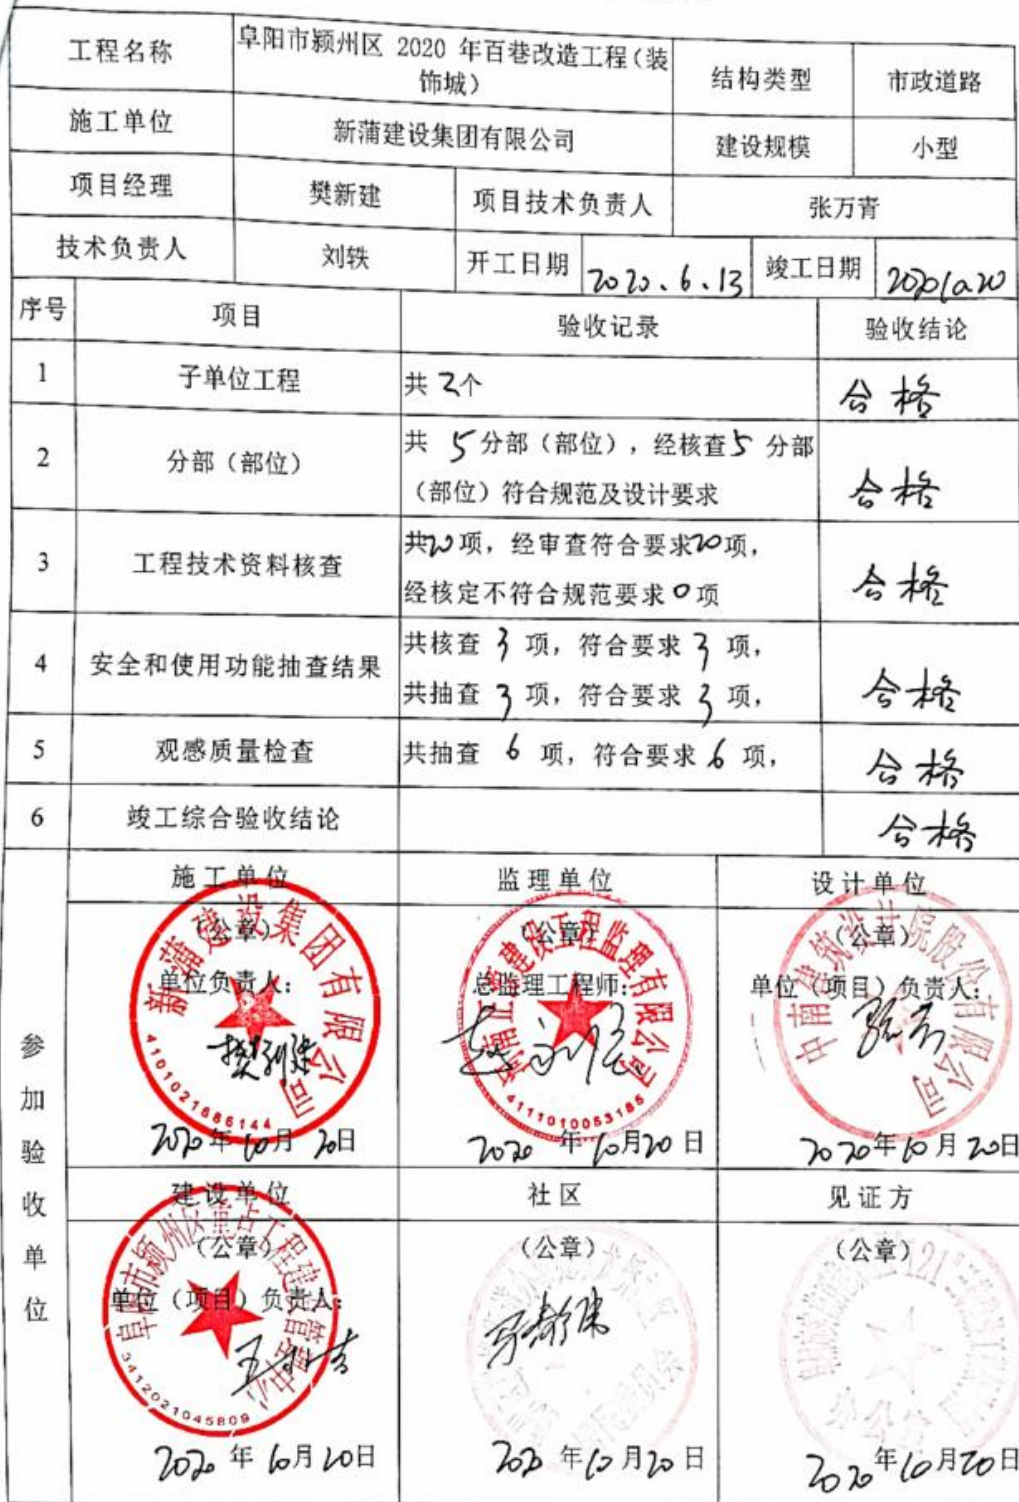 工程名称
阜阳市颍州区 2020 年百巷改造工程（装
饰城）
结构类型
市政道路
施工单位
新蒲建设集团有限公司
建设规模
小型
项目经理
樊新建
项目技术负责人
张万青
技术负责人
刘轶
开工日期
2020.6.13
竣工日期
序号
项目
验收记录
验收结论
1
子单位工程
共 2个
合格
2
分部（部位）
共 5分部（部位），经核查5 分部
（部位）符合规范及设计要求
合格
3
工程技术资料核查
共20项，经审查符合要求20项，
经核定不符合规范要求0项
合格
4
安全和使用功能抽查结果
共核查 3 项，符合要求 3 项，
共抽查 3 项，符合要求 3 项，
合格
5
观感质量检查
共抽查 6 项，符合要求 6 项，
合格
6
竣工综合验收结论
合格
参加验收单位
施工单位
（公章）
单位负责人：
新蒲建设集团有限公司
4101021686144
樊新建
2020年10月 20日
监理单位
（公章）
总监理工程师：
建设工程监理有限公司
4111010053185
2020 年 10月20 日
设计单位
（公章）
单位（项目）负责人：
中南建筑设计院股份有限公司
2020年10月20日
建设单位
（公章）
单位（项目）负责人：
阜阳市颍州区重点工程建设管理中心
3412021045809
2020 年 10月20日
社区
（公章）
2020 年10月20日
见证方
（公章）
办公室
2020年10月20日